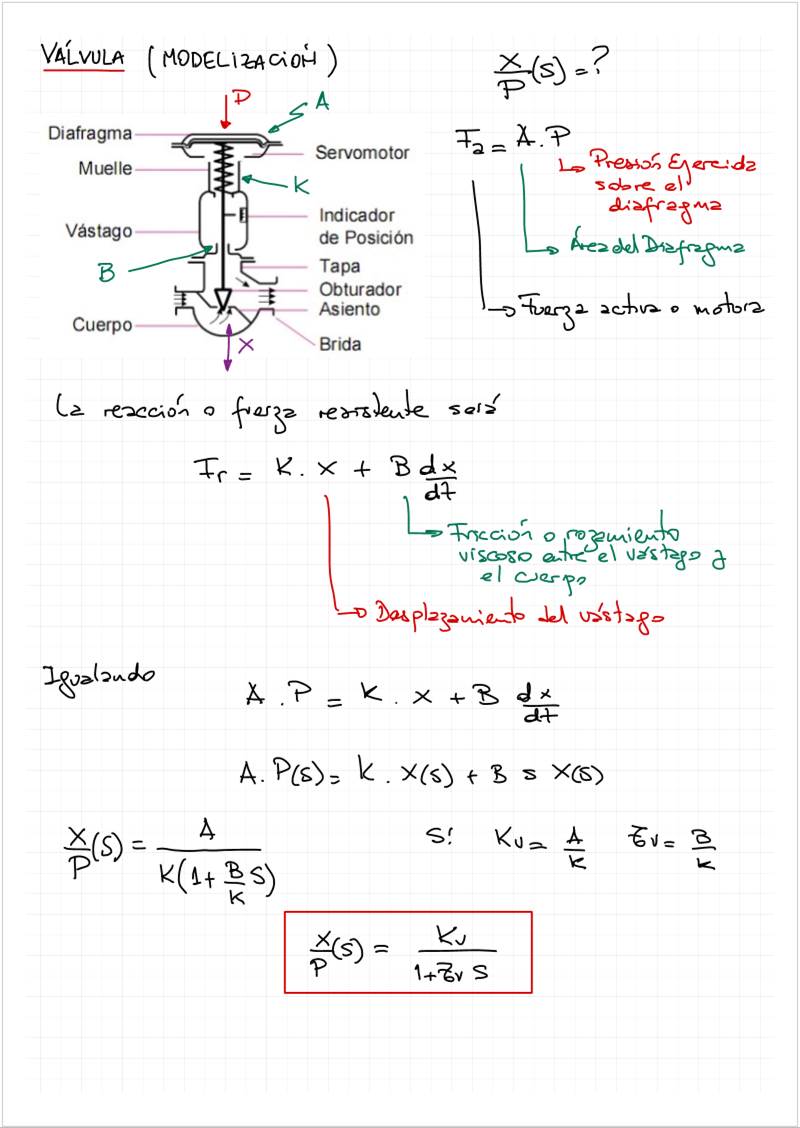 VÁLVULA (MODELIZACIÓN)
X/P(s) = ?
P
A
Diafragma
Servomotor
Muelle
K
Vástago
Indicador
de Posición
B
Tapa
Obturador
Asiento
Cuerpo
Brida
X
Fa = A.P
Presión Ejercida
sobre el
diafragma
Área del Diafragma
Fuerza activa o motora
La reacción o fuerza resistente será
Fr = K. x + B dx/dt
Fricción o rozamiento
viscoso entre el vástago y
el cuerpo
Desplazamiento del vástago
Igualando
A.P = K. x + B dx/dt
A.P(s) = K. X(s) + B s X(s)
X/P(s) = A/K(1+B/K s)
Si Kv = A/K τv = B/K
X/P(s) = Kv/1+τv s